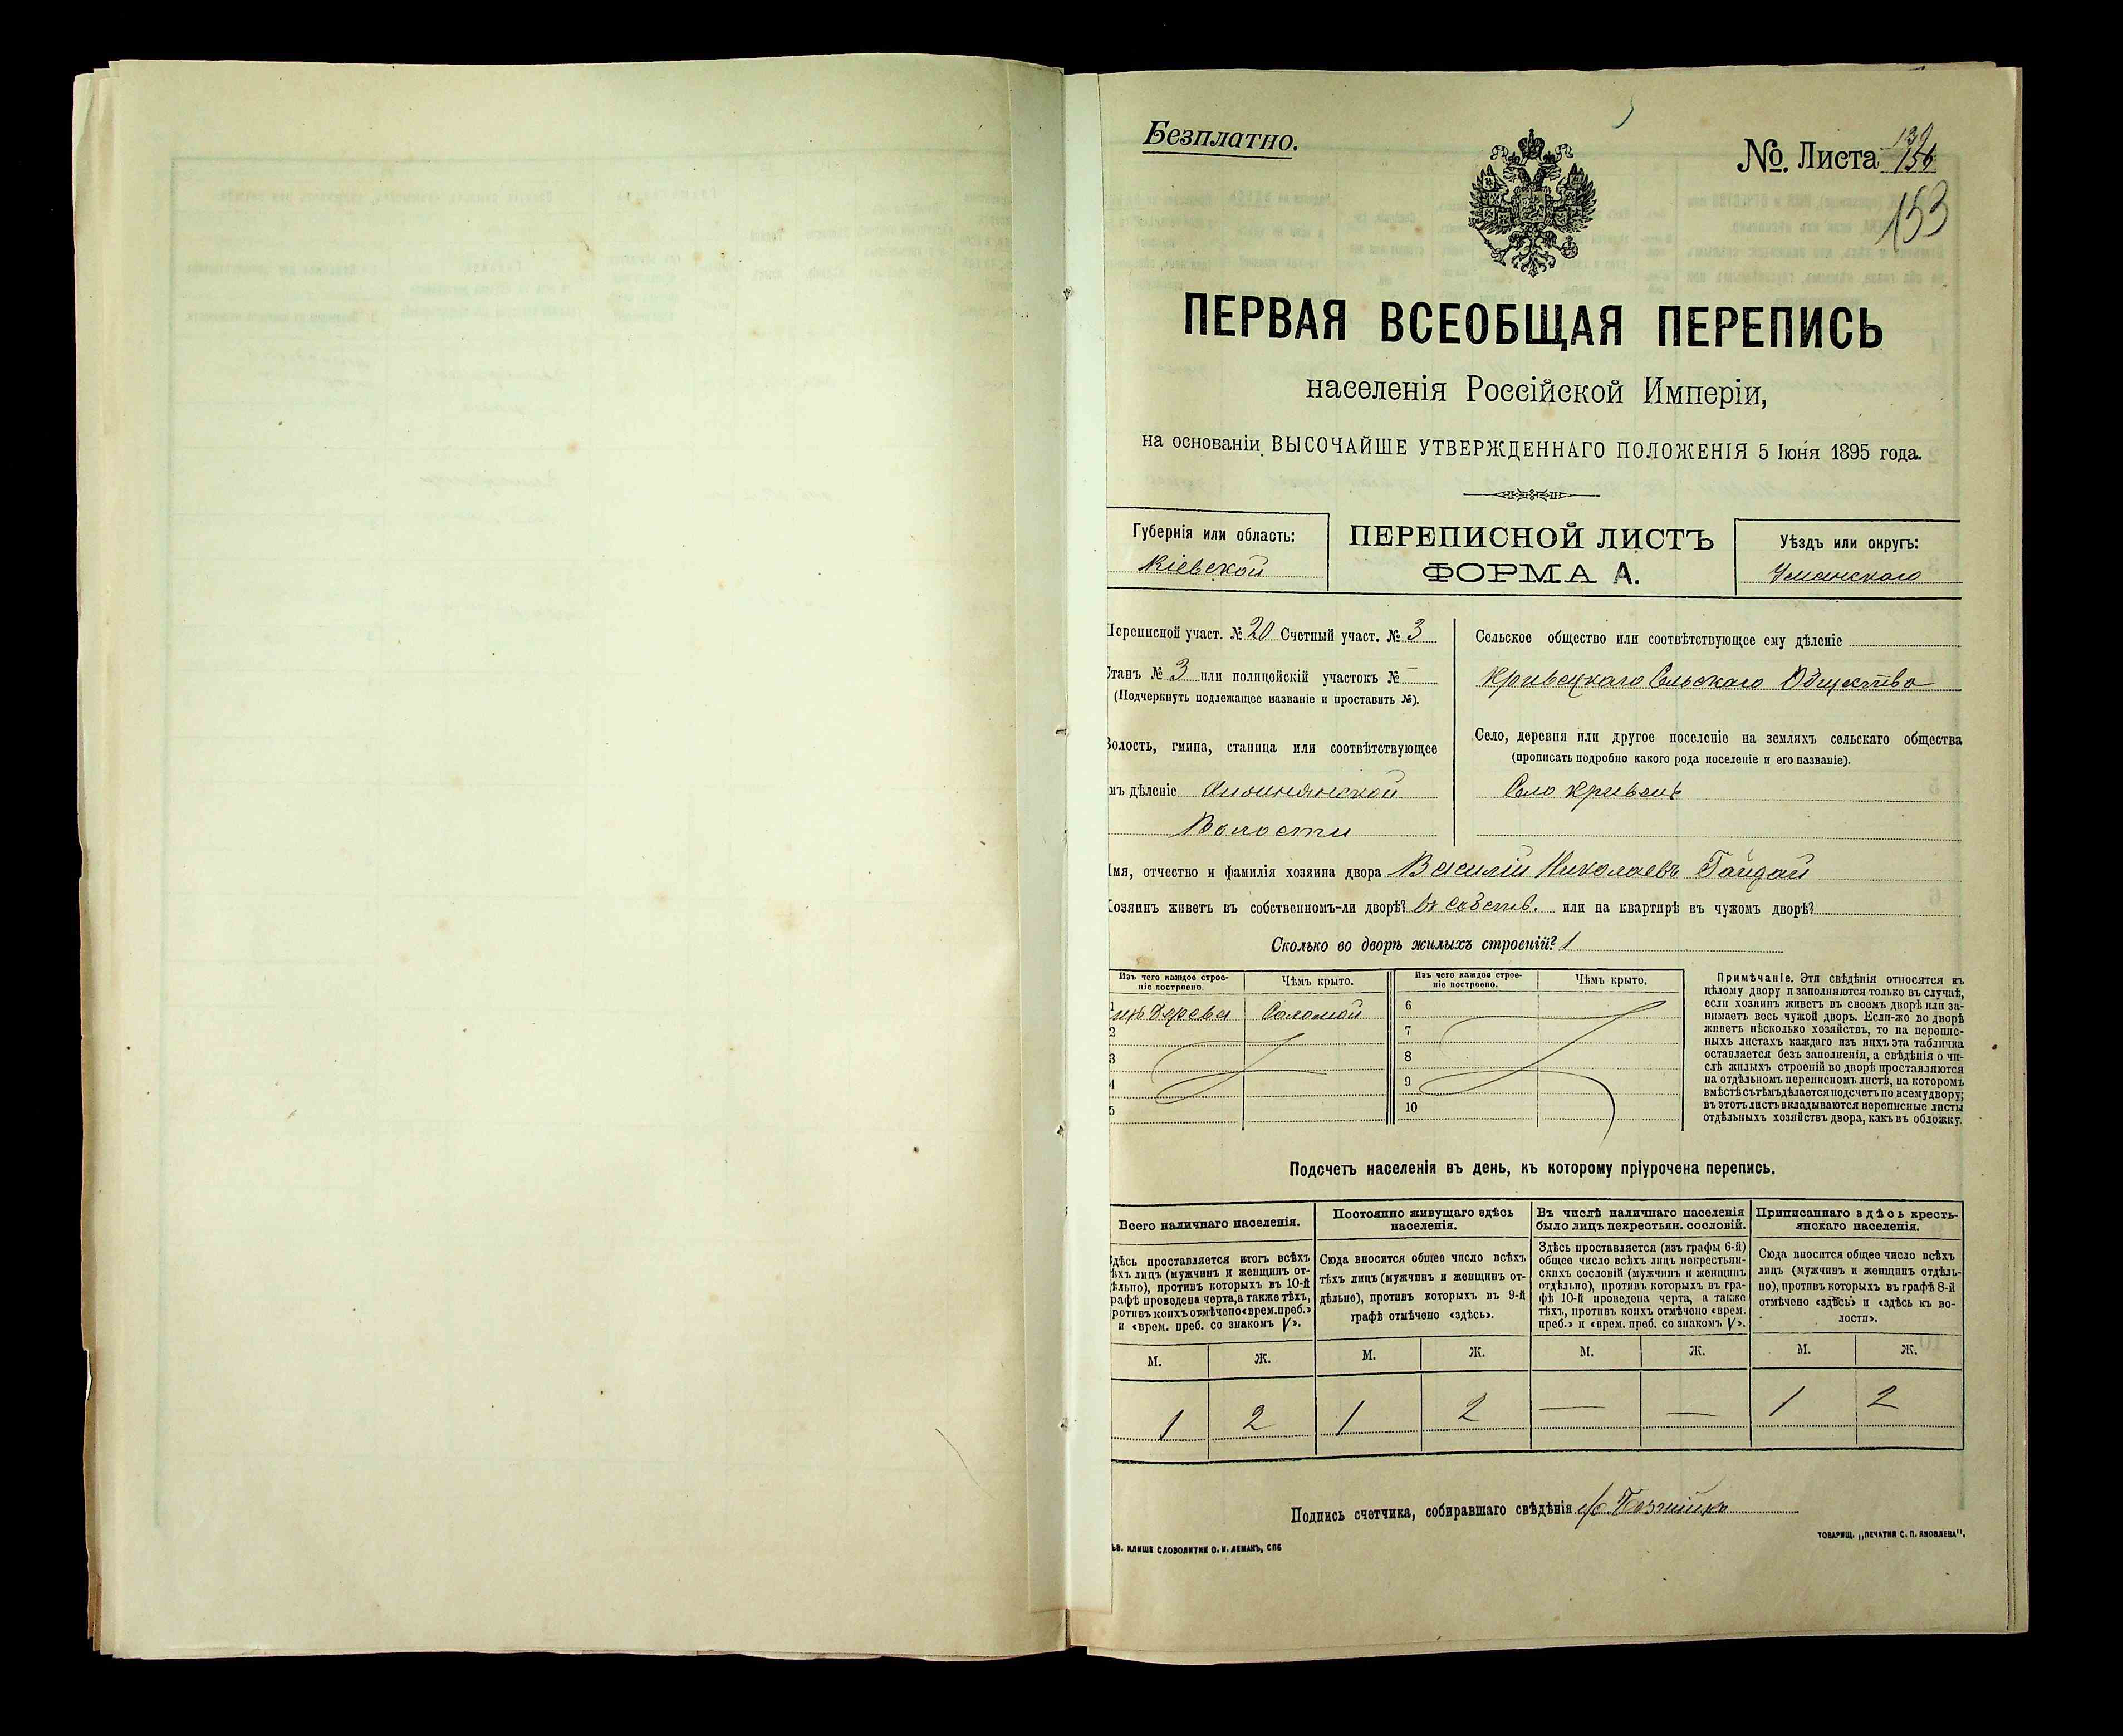 Безплатно.
№. Листа 139
156
153
ПЕРВАЯ ВСЕОБЩАЯ ПЕРЕПИСЬ
населенія Россійской Имперіи,
на основаніи ВЫСОЧАЙШЕ УТВЕРЖДЕННАГО ПОЛОЖЕНІЯ 5 Іюня 1895 года.
Губернія или область:
Кіевской
ПЕРЕПИСНОЙ ЛИСТЪ
ФОРМА А.
Уѣздъ или округъ:
Уманскаго
Переписной участ. № 20 Счетный участ. № 3
Станъ № 3 или полицейскій участокъ № —
(Подчеркнуть подлежащее названіе и проставить №).
Волость, гмина, станица или соотвѣтствующее
мъ дѣленіе
Волости
Сельское общество или соотвѣтствующее ему дѣленіе
Кривецкаго Сельскаго Общества
Село, деревня или другое поселеніе на земляхъ сельскаго общества
(прописать подробно какого рода поселеніе и его названіе).
Село Кривецъ
Имя, отчество и фамилія хозяина двора Василій Николаевъ Гайдай
Хозяинъ живетъ въ собственномъ-ли дворѣ? въ собств. или на квартирѣ въ чужомъ дворѣ?
Сколько во дворѣ жилыхъ строеній? 1
Изъ чего каждое строе-
ніе построено.
Чѣмъ крыто.
Изъ чего каждое строе-
ніе построено.
Чѣмъ крыто.
1 изъ дерева Соломой
2
3
4
5
6
7
8
9
10
Примѣчаніе. Эти свѣдѣнія относятся къ
цѣлому двору и заполняются только въ случаѣ,
если хозяинъ живетъ въ своемъ дворѣ или за-
нимаетъ весь чужой дворъ. Если-же во дворѣ
живетъ нѣсколько хозяйствъ, то на перепис-
ныхъ листахъ каждаго изъ нихъ эта табличка
оставляется безъ заполненія, а свѣдѣнія о чи-
слѣ жилыхъ строеній во дворѣ проставляются
на отдѣльномъ переписномъ листѣ, на которомъ
вмѣстѣ съ тѣмъ дѣлается подсчетъ по всему двору;
въ этотъ листъ вкладываются переписные листы
отдѣльныхъ хозяйствъ двора, какъ въ обложку.
Подсчетъ населенія въ день, къ которому пріурочена перепись.
Всего наличнаго населенія.
Здѣсь проставляется итогъ всѣхъ
тѣхъ лицъ (мужчинъ и женщинъ от-
дѣльно), противъ которыхъ въ 10-й
графѣ проведена черта, а также тѣхъ,
противъ коихъ отмѣчено «врем. преб.»
и «врем. преб. со знакомъ V».
Постоянно живущаго здѣсь
населенія.
Сюда вносится общее число всѣхъ
тѣхъ лицъ (мужчинъ и женщинъ от-
дѣльно), противъ которыхъ въ 9-й
графѣ отмѣчено «здѣсь».
Въ числѣ наличнаго населенія
было лицъ некрестьян. сословій.
Здѣсь проставляется (изъ графы 6-й)
общее число всѣхъ лицъ некрестьян-
скихъ сословій (мужчинъ и женщинъ
отдѣльно), противъ которыхъ въ гра-
фѣ 10-й проведена черта, а также
тѣхъ, противъ коихъ отмѣчено «врем.
преб.» и «врем. преб. со знакомъ V».
Приписаннаго здѣсь кресть-
янскаго населенія.
Сюда вносится общее число всѣхъ
лицъ (мужчинъ и женщинъ отдѣль-
но), противъ которыхъ въ графѣ 8-й
отмѣчено «здѣсь» и «здѣсь къ во-
лости».
М. Ж. М. Ж. М. Ж. М. Ж.
1 2 1 2 — — 1 2
Подпись счетчика, собиравшаго свѣдѣнія
ТОВАРИЩ. „ПЕЧАТНЯ С. П. ЯКОВЛЕВА".
ЬВ. КЛИШЕ СЛОВОЛИТНИ О. И. ЛЕМАНЪ, СПБ